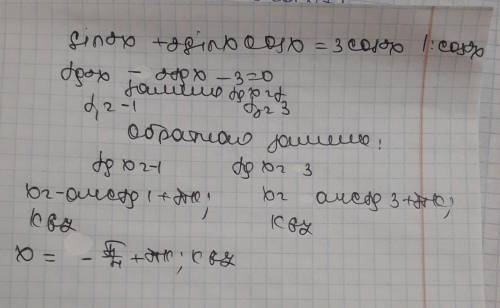 sin²x + 2sinx cosx = 3cos²x |:cos²x
tg²x - 2tgx - 3 = 0
замена tgx = t
t₁ = -1 t₂ = 3
Обратная замена:
tg x = -1 tg x = 3
x = -arctg 1 + πк; x = arctg 3 + πк;
к є z к є z
x = - π/4 + πк; к є z